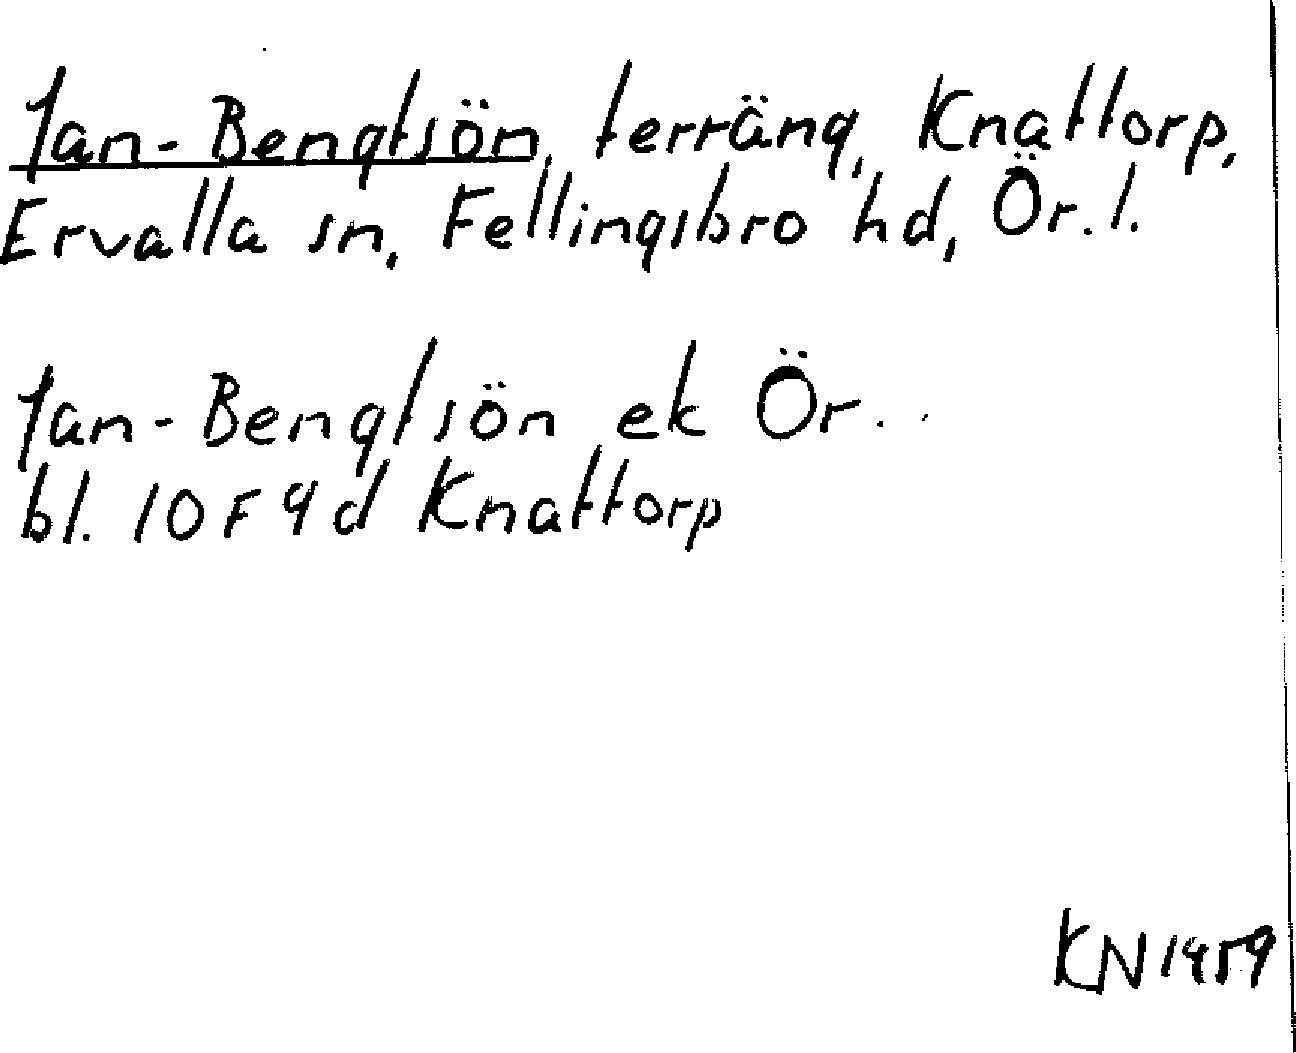 Jan-Bengtsön, terräng, Knattorp,
Ervalla sn, Fellingsbro hd, Ör. l.
Jan-Bengtsön ek Ör.
bl. 10F9d Knattorp
KN1959